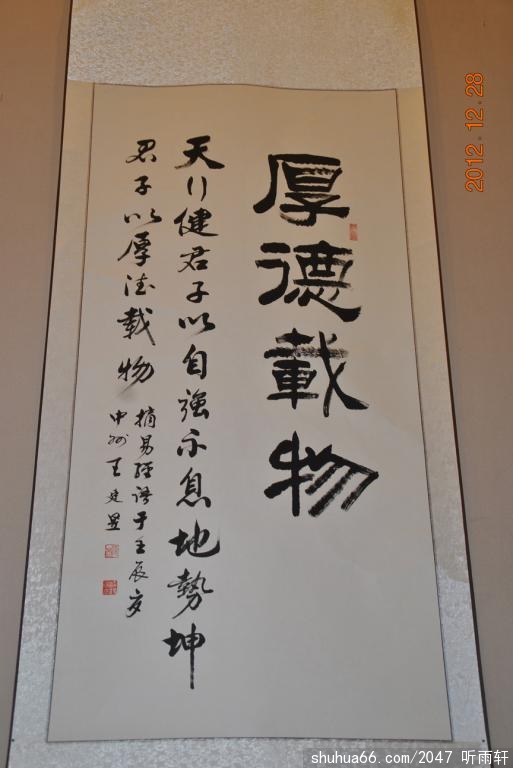 厚德載物
天行健君子以自強不息地勢坤
君子以厚德載物
摘易經語于壬辰
中州王
2012.12.28
shuhua66.com/2047 听雨轩